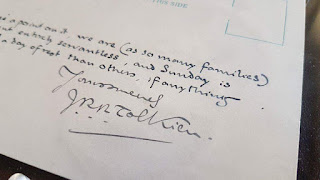 THIS SIDE
a point and we are (as so many families)
entirely servantless, and Sunday is
a day of rest than others, if anything
Yours sincerely
J.R.R. Tolkien.